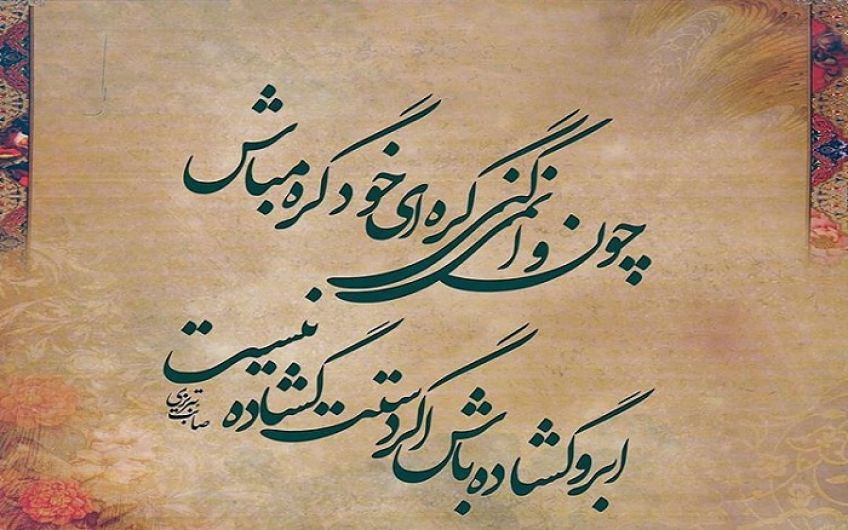 چون وانمی‌کنی گره‌ای خود گره مباش
ابرو گشاده باش اگر دستت گشاده نیست
صائب تبریزی